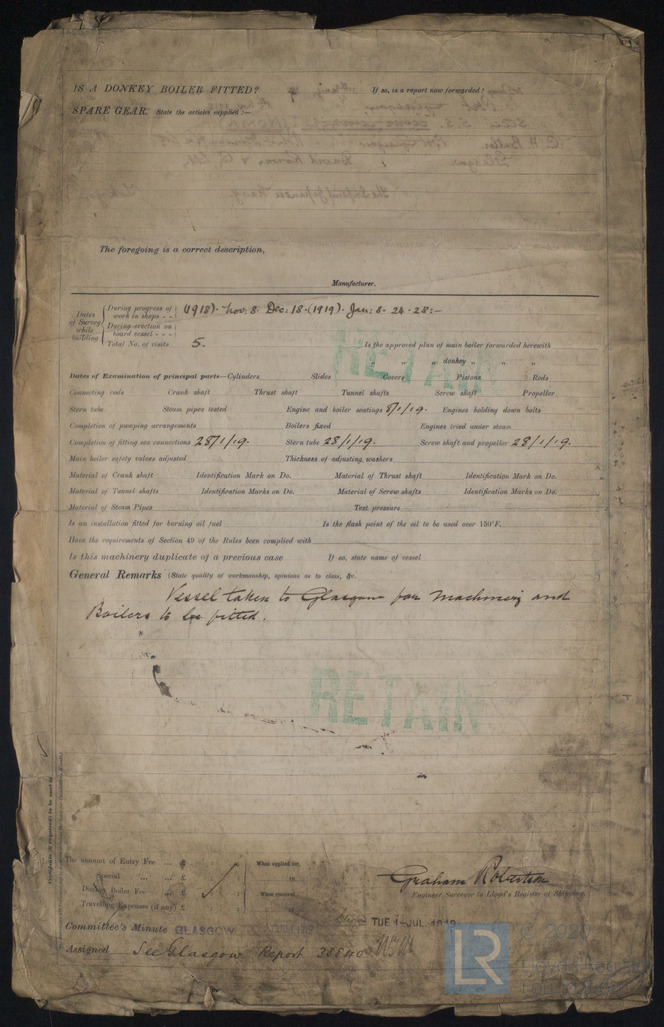 IS A DONKEY BOILER FITTED? If so, is a report now forwarded?
SPARE GEAR. State the articles supplied:—
The foregoing is a correct description,
Manufacturer.
Dates of Survey while building
During progress of work in shops - - (1918). Nov: 8. Dec: 18 - (1919). Jan: 8 - 24 - 28:-
During erection on board vessel - - -
Total No. of visits 5. Is the approved plan of main boiler forwarded herewith
" " donkey " " "
Dates of Examination of principal parts—Cylinders Slides Covers Pistons Rods
Connecting rods Crank shaft Thrust shaft Tunnel shafts Screw shaft Propeller
Stern tube Steam pipes tested Engine and boiler seatings 8/1/19. Engines holding down bolts
Completion of pumping arrangements Boilers fixed Engines tried under steam
Completion of fitting sea connections 28/1/19. Stern tube 28/1/19. Screw shaft and propeller 28/1/19.
Main boiler safety valves adjusted Thickness of adjusting washers
Material of Crank shaft Identification Mark on Do. Material of Thrust shaft Identification Mark on Do.
Material of Tunnel shafts Identification Marks on Do. Material of Screw shafts Identification Marks on Do.
Material of Steam Pipes Test pressure
Is an installation fitted for burning oil fuel Is the flash point of the oil to be used over 150°F.
Have the requirements of Section 49 of the Rules been complied with
Is this machinery duplicate of a previous case If so, state name of vessel
General Remarks (State quality of workmanship, opinions as to class, &c.
Vessel taken to Glasgow for Machinery and
Boilers to be fitted.
RETAIN
RETAIN
The amount of Entry Fee ... £ When applied for,
Special ... ... £
Donkey Boiler Fee ... £ When received,
Travelling Expenses (if any) £
Graham Robertson
Engineer Surveyor to Lloyd's Register of Shipping.
Committee's Minute GLASGOW TUE 1-JUL 1919
Assigned See Glasgow Report 38840
LR